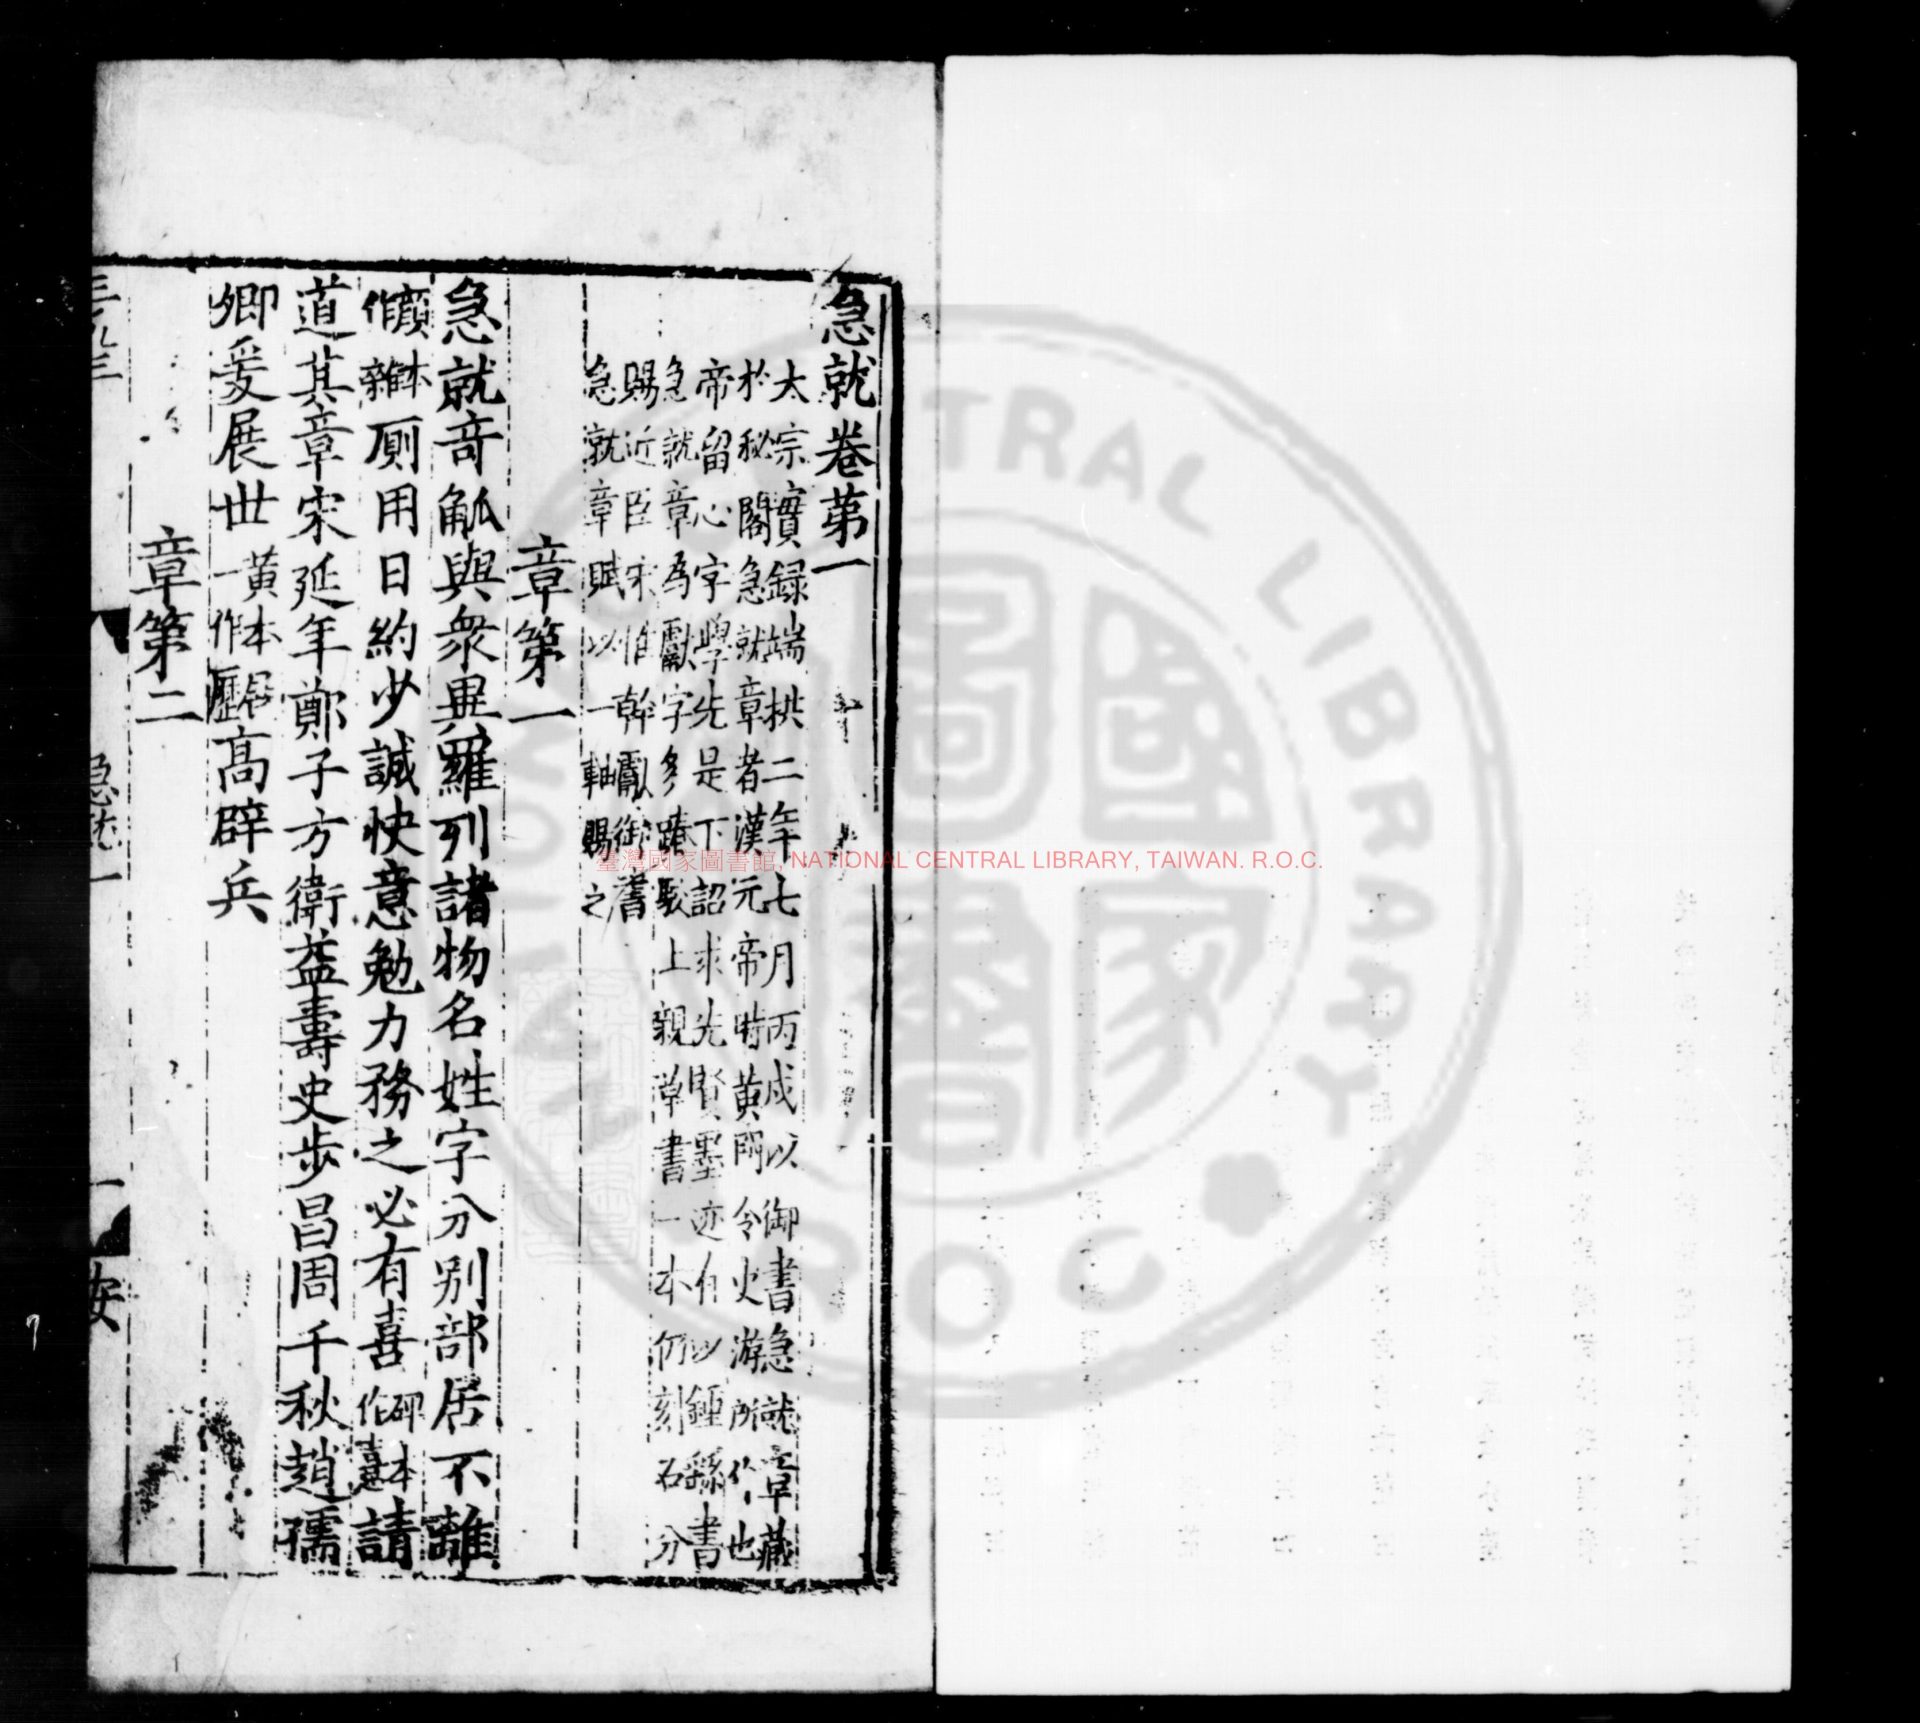 急就卷第一
太宗實録端拱二年七月丙戍以御書急就章藏
於秘閣急就章者漢元帝時黄門令史游所作也
帝留心字學先是下詔求先賢墨迹有以鍾繇書
急就章為獻字多踳駁上親草書一本仍刻石分
賜近臣宋惟幹獻御書
急就章賦以一軸賜之
章第一
急就奇觚與衆異羅列諸物名姓字分别部居不雜
顔本作雜厠用日約少誠快意勉力務之必有喜碑本作憙請
道其章宋延年鄭子方衛益壽史步昌周千秋趙孺
卿爰展世黄本一作 高辟兵
章第二
急就一
一
安
臺灣國家圖書館, NATIONAL CENTRAL LIBRARY, TAIWAN. R.O.C.
國家圖書
CENTRAL LIBRARY
R.O.C.